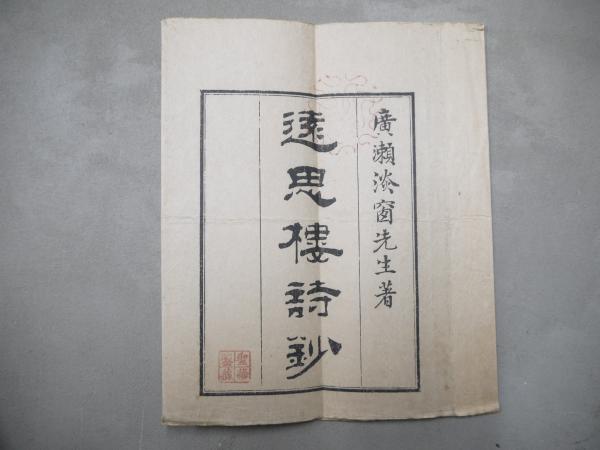 廣瀬淡窗先生著
遠思樓詩鈔